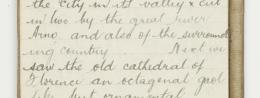 the city in its valley & cut
in two by the great river
Arno and also of the surround
ing country Next we
saw the old cathedral of
Florence an octagonal
like but ornamental